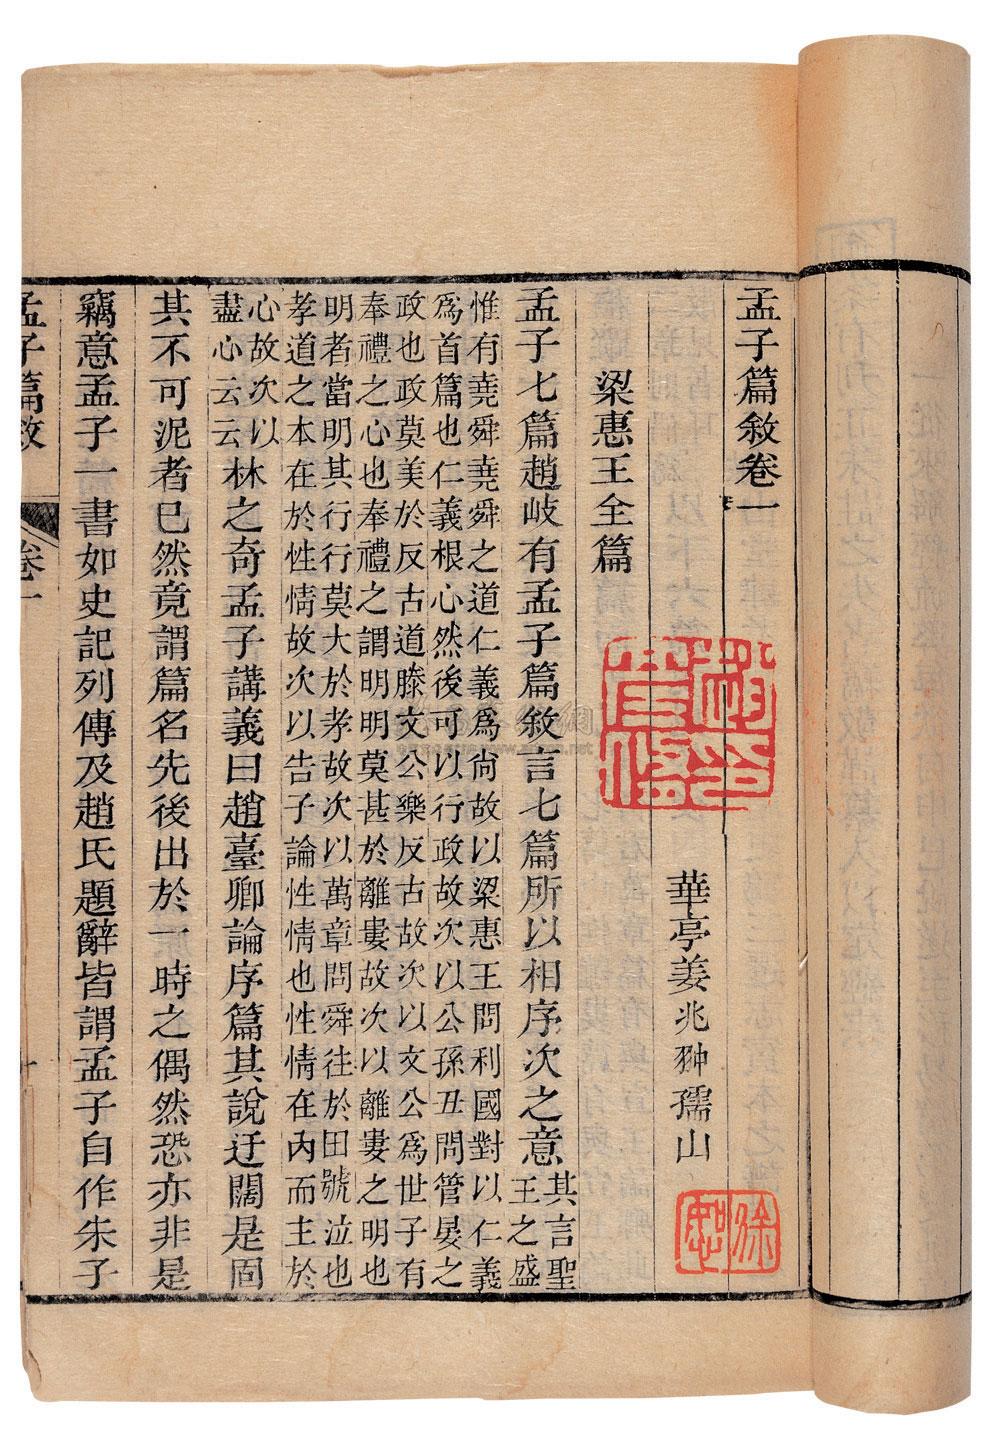 孟子篇敘卷一
華亭姜兆翀孺山
梁惠王全篇
孟子七篇趙岐有孟子篇敘言七篇所以相序次之意
其言聖
王之盛
惟有堯舜堯舜之道仁義爲尙故以梁惠王問利國對以仁義
爲首篇也仁義根心然後可以行政故次以公孫丑問管晏之
政也政莫美於反古道滕文公樂反古故次以文公爲世子有
奉禮之心也奉禮之謂明明莫甚於離婁故次以離婁之明也
明者當明其行行莫大於孝故次以萬章問舜往於田號泣也
孝道之本在於性情故次以告子論性情也性情在內而主於
心故次以
盡心云云
林之奇孟子講義曰趙臺卿論序篇其說迂闊是固
其不可泥者已然竟謂篇名先後出於一時之偶然恐亦非是
竊意孟子一書如史記列傳及趙氏題辭皆謂孟子自作朱子
孟子篇敘
卷一
徐恕